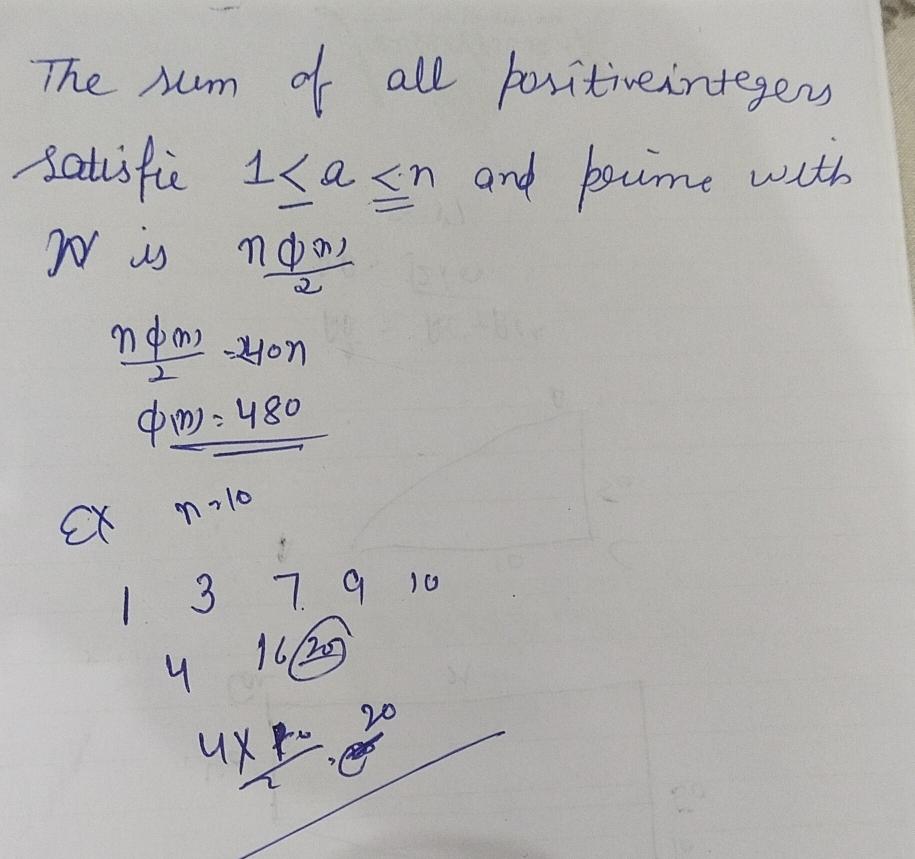 The sum of all positive integers
satisfie 1 ≤ a ≤ n and prime with
N is nϕ(n)/2
nϕ(n)/2 = 240n
ϕ(n) = 480
Ex n=10
1 3 7 9 10
4 16 20
4 × 10/2 = 20